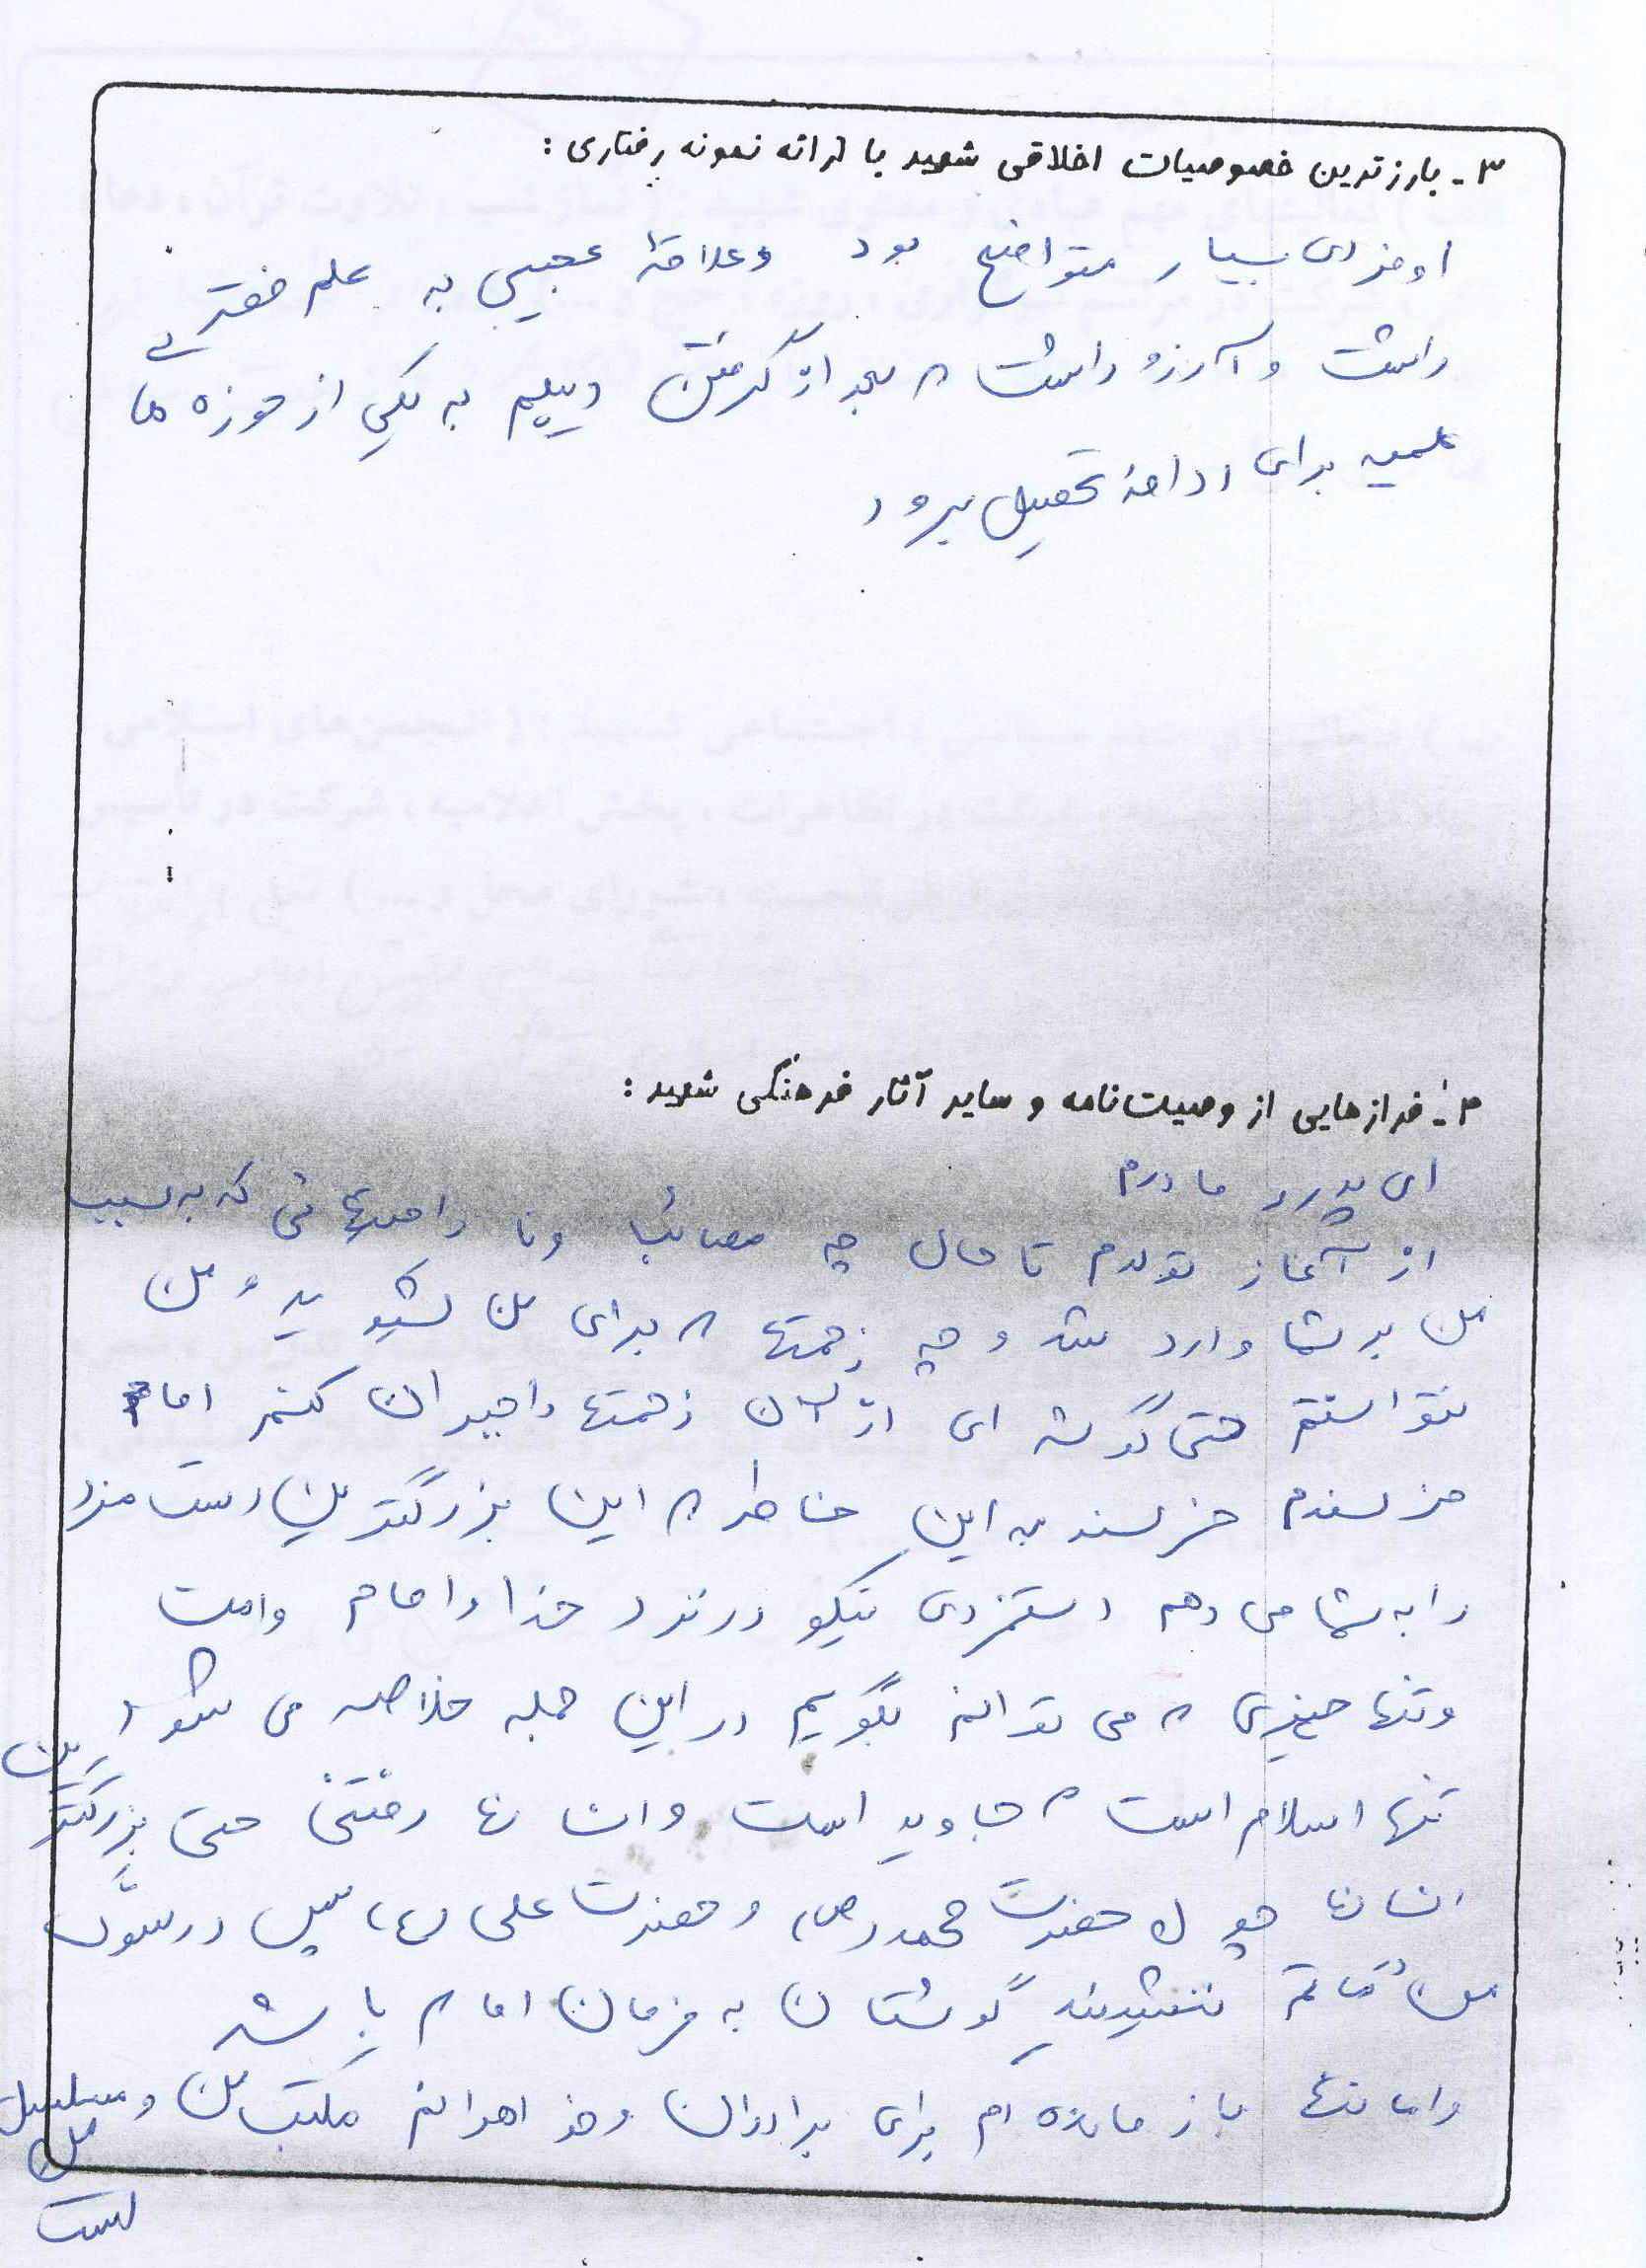 ۳- بارزترین خصوصیات اخلاقی شهید با ارائه نمونه رفتاری :
او فردی بسیار متواضع بود و علاقهٔ عجیبی به علم فقه
داشت و آرزو داشت که بعد از گرفتن دیپلم به یکی از حوزه های
علمیه برای ادامهٔ تحصیل برود
۴- فرازهایی از وصیت‌نامه و سایر آثار فرهنگی شهید :
ای پدر و مادرم
از آغاز تولدم تا حال چه مصائبها و نا راحتیهائی که به سبب
من بر شما وارد شد و چه زحمتها که برای من کشیدید و من
نتوانستم حتی گوشه ای از آن زحمتها را جبران کنم اما
خرسندم خرسند به این خاطر که این بزرگترین دست مزد
را به شما می دهم دستمزدی نیکو در نزد خدا و امام و امت
و تنها چیزی که می توانم بگویم در این جمله خلاصه می شود
تنها اسلام است که جاوید است و انسانها رفتنی حتی بزرگترین
انسانها چون حضرت محمد (ص) و حضرت علی (ع) پس در سوگ
من ماتم ننشینید گوشتان به فرمان امام باشد
و اما تنها باز مانده ام برای برادران و خواهرانم مکتب من و مسلسل
من است